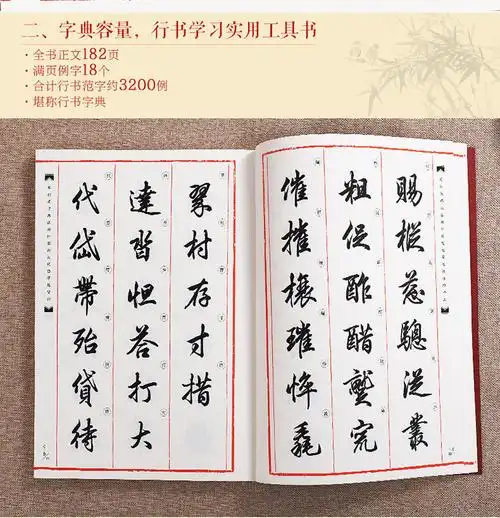 二、字典容量，行书学习实用工具书
·全书正文182页
·满页例字18个
·合计行书范字约3200例
·堪称行书字典
賜樅驄從叢
粗促酢醋
催摧榱璀悴毳
翠村存寸措
達沓怛答打大
代岱帶殆貸待